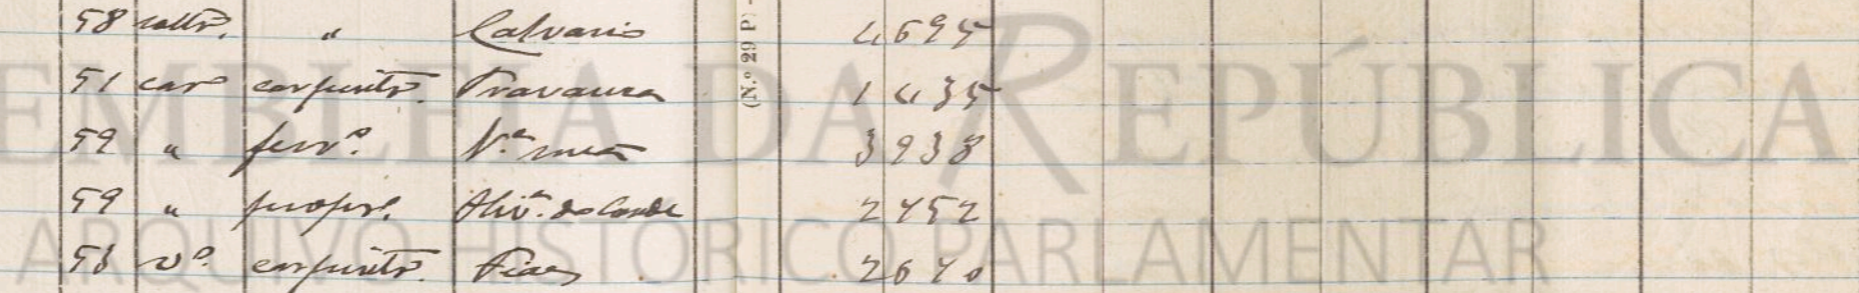 58 soltr.º " Calvario 4695
51 casº carpintrº. Travanca 1435
59 " ferrº. Nª 3938
59 " proprº. Olivª. do Conde 2452
53 vº. carpintrº. Fiaes 2640
(N.º 29 P)
EMBLEIA DA REPÚBLICA
ARQUIVO HISTÓRICO PARLAMENTAR